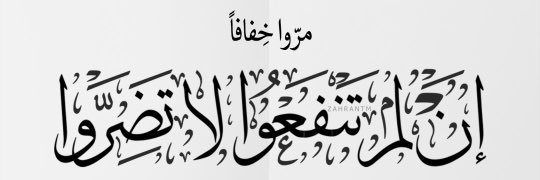 مرّوا خِفافاً
إن لم تنفعُوا لا تضرّوا
ZAHRANTM